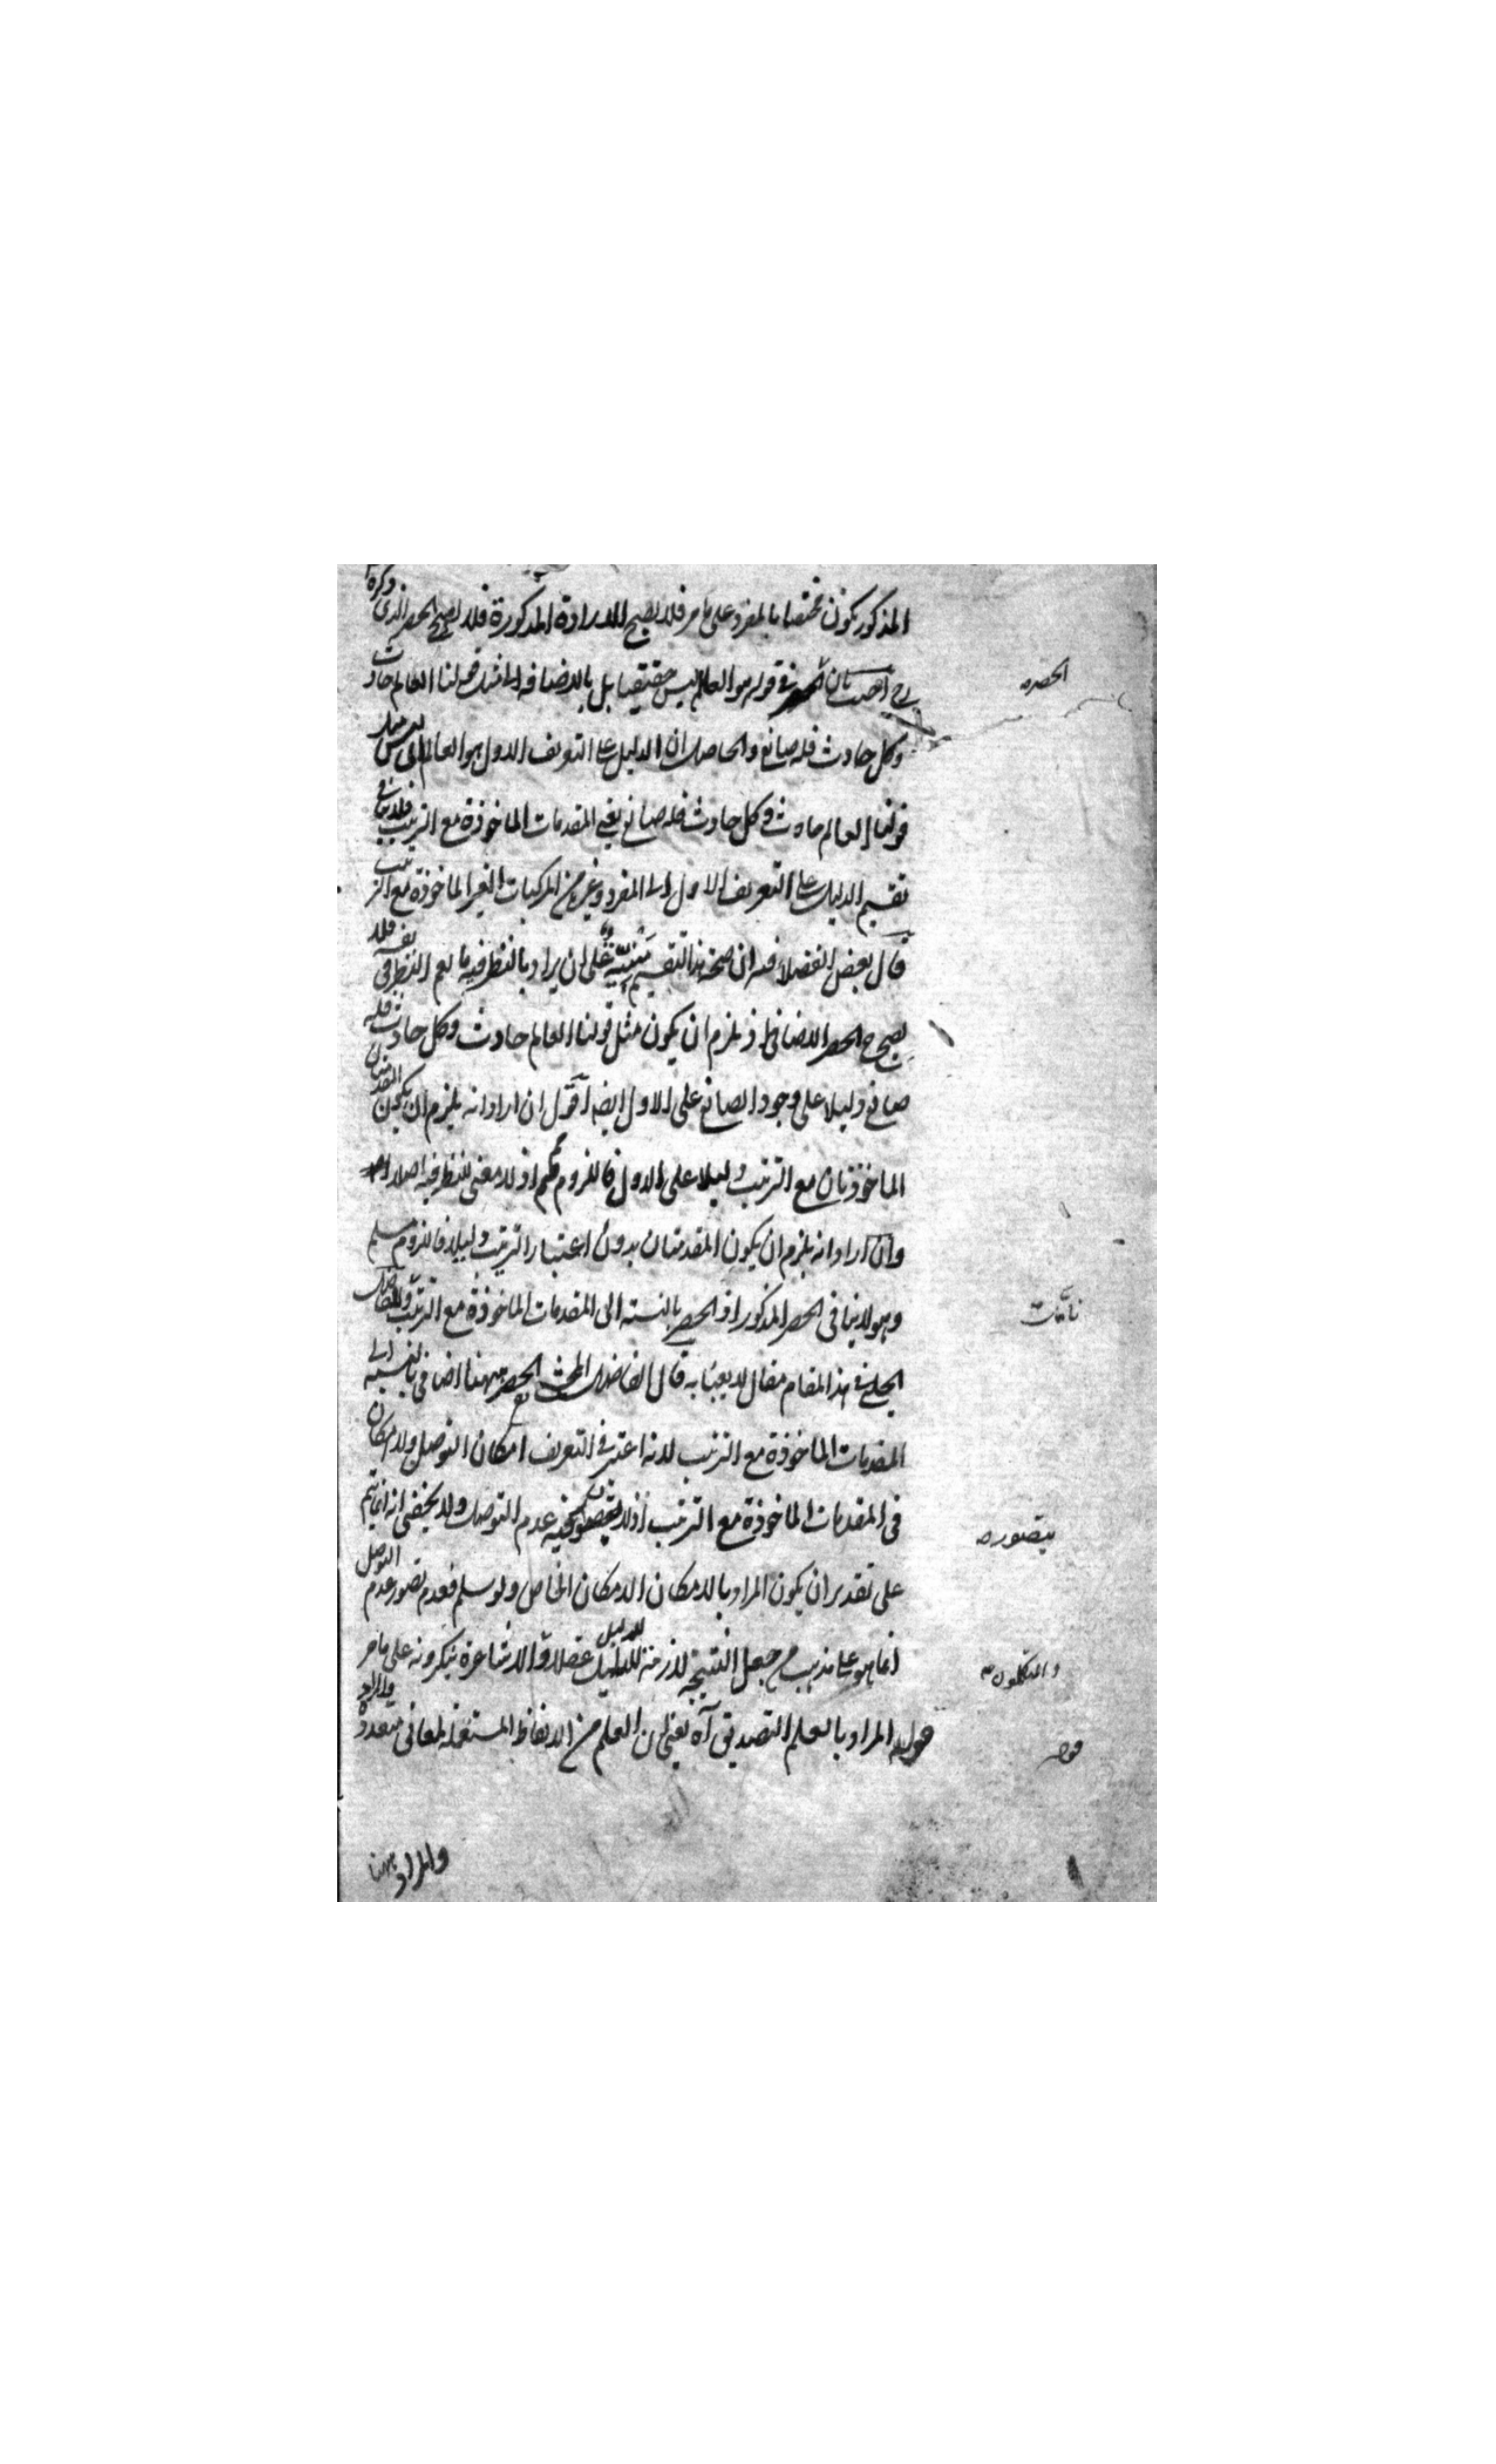 المذكور يكون مختصا بالمفرد على ما مر فلا يصح الارادة المذكورة فلا يصح الحصر الذى ذكره
ح اجيب بان الحصر فى قوله هو العالم ليس حقيقيا بل بالاضافه الى مثل قولنا العالم حادث
الحصر صح
وكل حادث فله صانع والحاصل ان الدليل على التعريف الاول هو العالم لا مثل
قولنا العالم حادث وكل حادث فله صانع يعنى المقدمات الماخوذة مع الترتيب فلا ينافى
تقسيم الدليل على التعريف الاول الى المفرد وغيره من المركبات الغير الماخوذة مع الترتيب
قال بعض الفضلاء ان صحة هذا التقسيم مبنية على ان يراد بالنظر فيه ما يعم النظر فى نفسه فلا
يصح ح الحصر الاضافى اذ يلزم ان يكون مثل قولنا العالم حادث وكل حادث فله
صانع دليلا على وجود الصانع على الاول ايضا اقول ان اراد انه يلزم ان يكون المقدمتان
الماخوذتان مع الترتيب دليلا على الاول فاللزوم مم اذ لا معنى للنظر فيه اصلا
وان اراد انه يلزم ان يكون المقدمتان بدون اعتبار الترتيب دليلا فاللزوم مسلم
وهو لا ينافى الحصر المذكور اذ الحصر بالنسبة الى المقدمات الماخوذة مع الترتيب وللفاضل
الجلبى فى هذا المقام مقال لا يعبأ به قال الفاضل المحشى الحصر ههنا اضافى بالنسبة الى
المقدمات الماخوذة مع الترتيب لانه اعتبر فى التعريف امكان التوصل ولا امكان
فى المقدمات الماخوذة مع الترتيب اذ لا يتصور فيه عدم التوصل ولا يخفى انه انما يتم
يتصور صح
على تقدير ان يكون المراد بالامكان الامكان الخاص ولو سلم فعدم تصور عدم التوصل
انما هو على مذهب من جعل النتيجة لازمة للدليل عقلا والاشاعرة ينكرونه على ما مر
والمتكلمون صح
قوله المراد بالعلم التصديق آه يعنى ان العلم من الالفاظ المستعملة لمعانى متعددة والمراد
قوله
والمراد ههنا